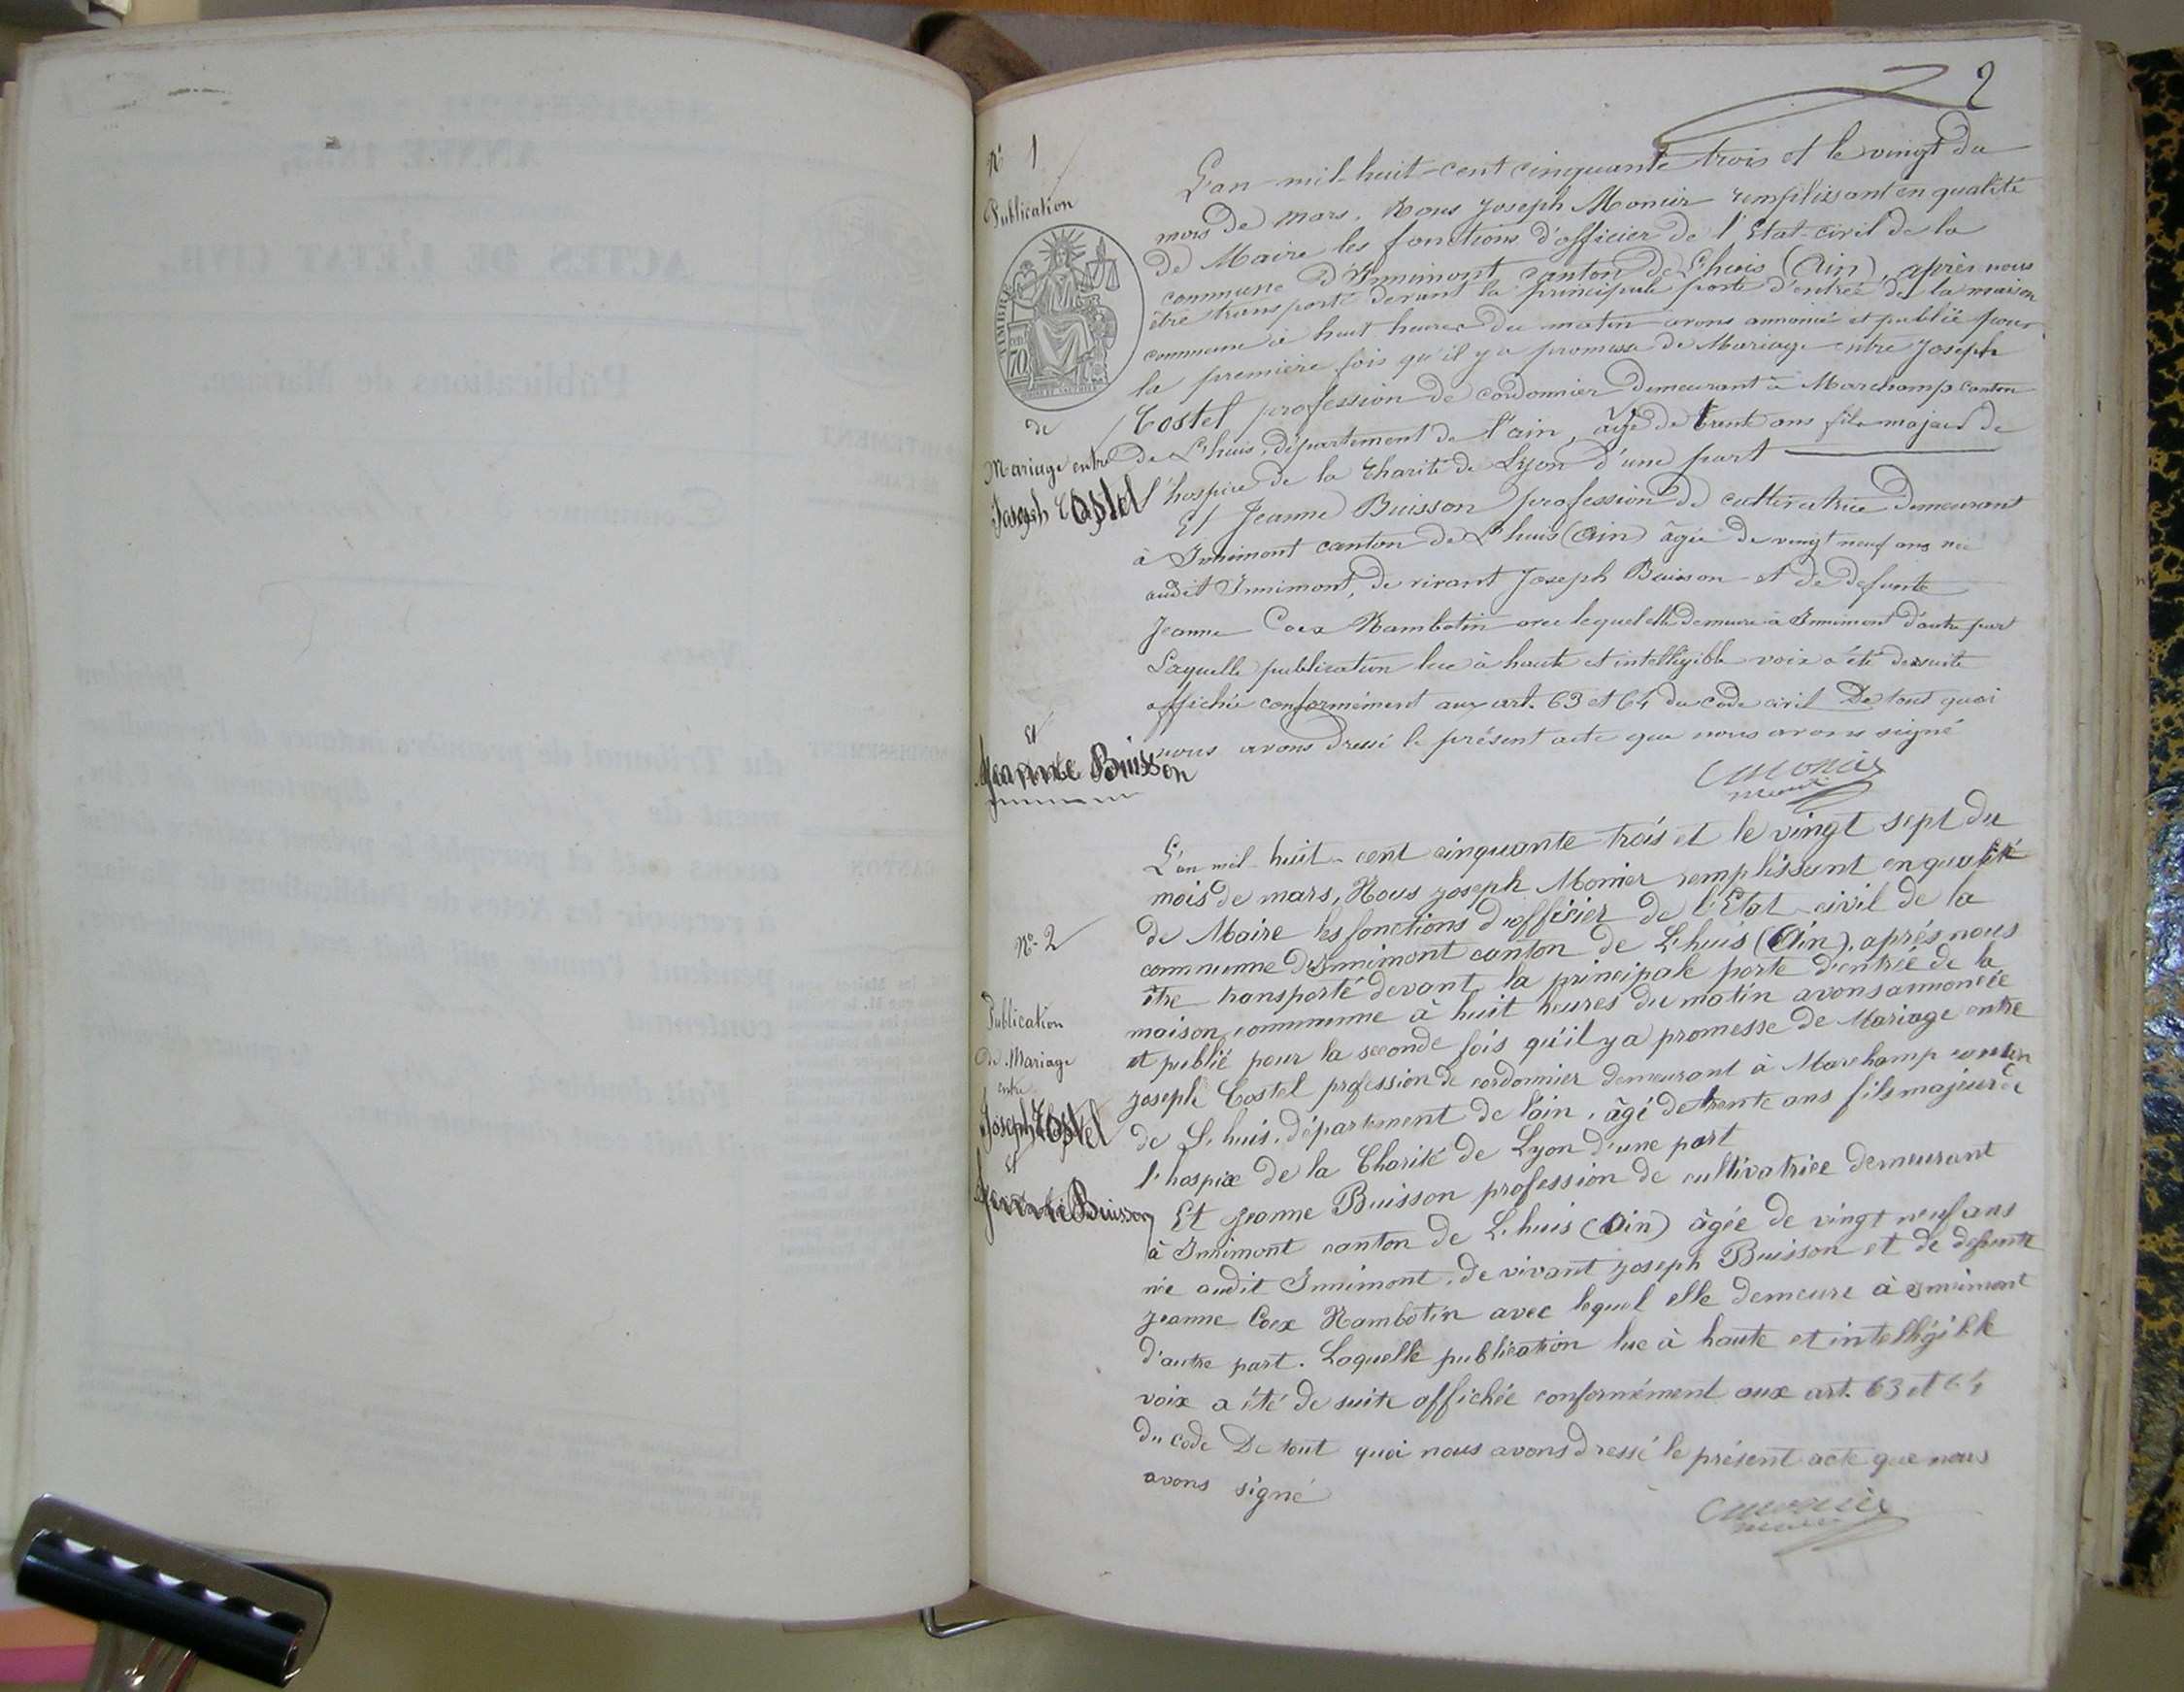 2
N° 1
Publication
de
Mariage entre
Joseph Costel
et
Jeanne Buisson
L'an mil huit cent cinquante trois et le vingt du
mois de mars. Nous Joseph Monier remplissant en qualité
de Maire les fonctions d'officier de l'Etat-civil de la
commune d'Innimont, canton de Lhuis (Ain), après nous
être transporté devant la principale porte d'entrée de la maison
commune à huit heures du matin avons annoncé et publié pour
la première fois qu'il y a promesse de Mariage entre Joseph
Costel profession de cordonnier demeurant à Marchamp canton
de Lhuis, département de l'ain, âgé de trente ans fils majeur de
l'hospice de la Charité de Lyon d'une part
Et Jeanne Buisson profession de cultivatrice demeurant
à Innimont canton de Lhuis (Ain) âgée de vingt neuf ans née
audit Innimont, de vivant Joseph Buisson et de defunte
Jeanne Coex Rambotin avec lequel elle demeure à Innimont d'autre part
Laquelle publication lue à haute et intelligible voix a été de suite
affichée conformément aux art. 63 et 64 du code civil De tout quoi
nous avons dressé le présent acte que nous avons signé
Monier
maire
N° 2
Publication
de Mariage
entre
Joseph Costel
et
Jeanne Buisson
L'an mil huit cent cinquante trois et le vingt sept du
mois de mars, Nous Joseph Monier remplissant en qualité
de Maire les fonctions d'officier de l'Etat civil de la
commune d'Innimont canton de Lhuis (Ain), après nous
être transporté devant la principale porte d'entrée de la
maison commune à huit heures du matin avons annoncée
et publié pour la seconde fois qu'il y a promesse de Mariage entre
Joseph Costel profession de cordonnier demeurant à Marchamp canton
de Lhuis, département de l'ain, âgé de trente ans fils majeur de
l'hospice de la Charité de Lyon d'une part
Et Jeanne Buisson profession de cultivatrice demeurant
à Innimont canton de Lhuis (Ain) âgée de vingt neuf ans
née audit Innimont, de vivant Joseph Buisson et de defunte
Jeanne Coex Rambotin avec lequel elle demeure à Innimont
d'autre part. Laquelle publication lue à haute et intelligible
voix a été de suite affichée conformément aux art. 63 et 64
du code De tout quoi nous avons dressé le présent acte que nous
avons signé
Monier
maire